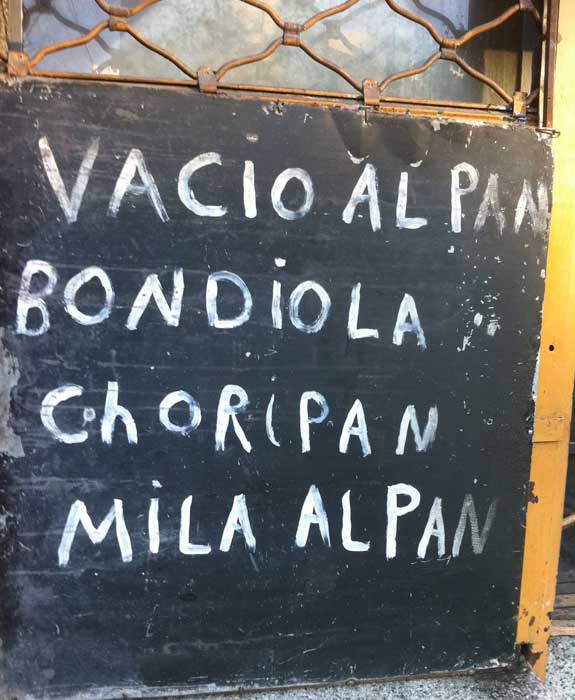 VACIO ALPAN
BONDiOLA
ChORIPAN
MiLA ALPAN